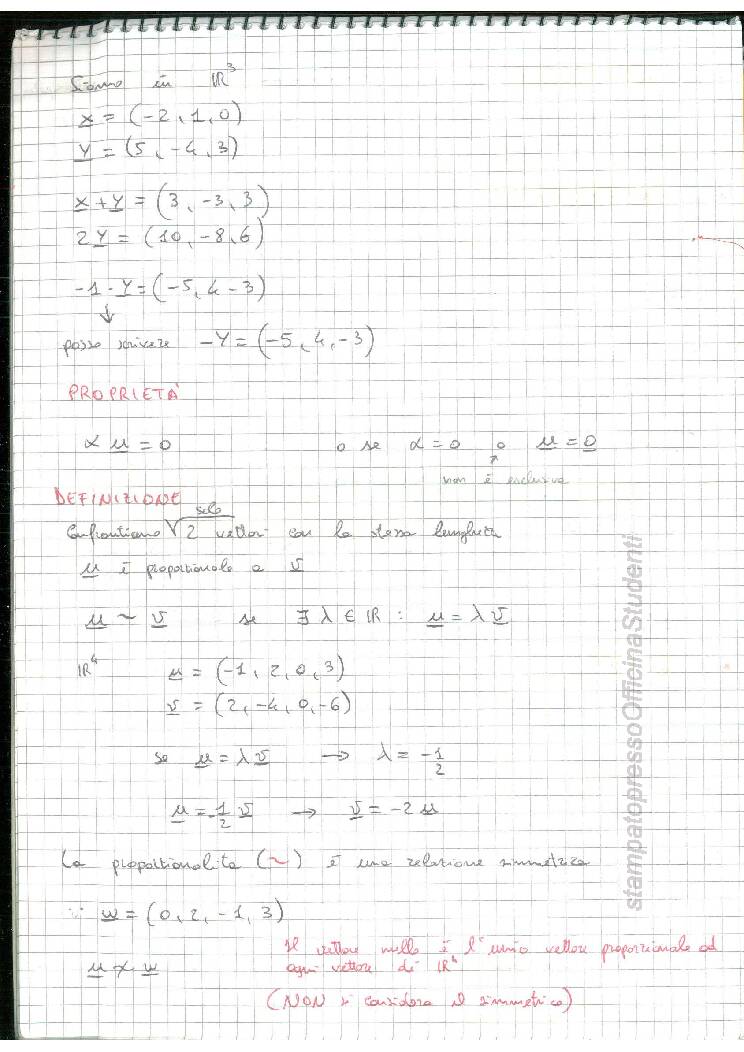 Siamo in IR³
x = (-2, 1, 0)
y = (5, -4, 3)
x + y = (3, -3, 3)
2y = (10, -8, 6)
-1 · y = (-5, 4 -3)
↓
posso scrivere -y = (-5, 4, -3)
PROPRIETÀ
α u = 0 o se α = 0 o u = 0
↑
non è esclusiva
DEFINIZIONE
solo
Confrontiamo √ 2 vettori con la stessa lunghezza
u è proporzionale a v
u ~ v se ∃ λ ∈ IR : u = λ v
IR⁴ u = (-1, 2, 0, 3)
v = (2, -4, 0, -6)
se u = λ v → λ = -1/2
u = -1/2 v → v = -2 u
La proporzionalità (~) è una relazione simmetrica
w = (0, 2, -1, 3)
u ≁ w
Il vettore nullo è l'unico vettore proporzionale ad
ogni vettore di IR⁴
(NON si considera il simmetrico)
stampatopressoOfficinaStudenti